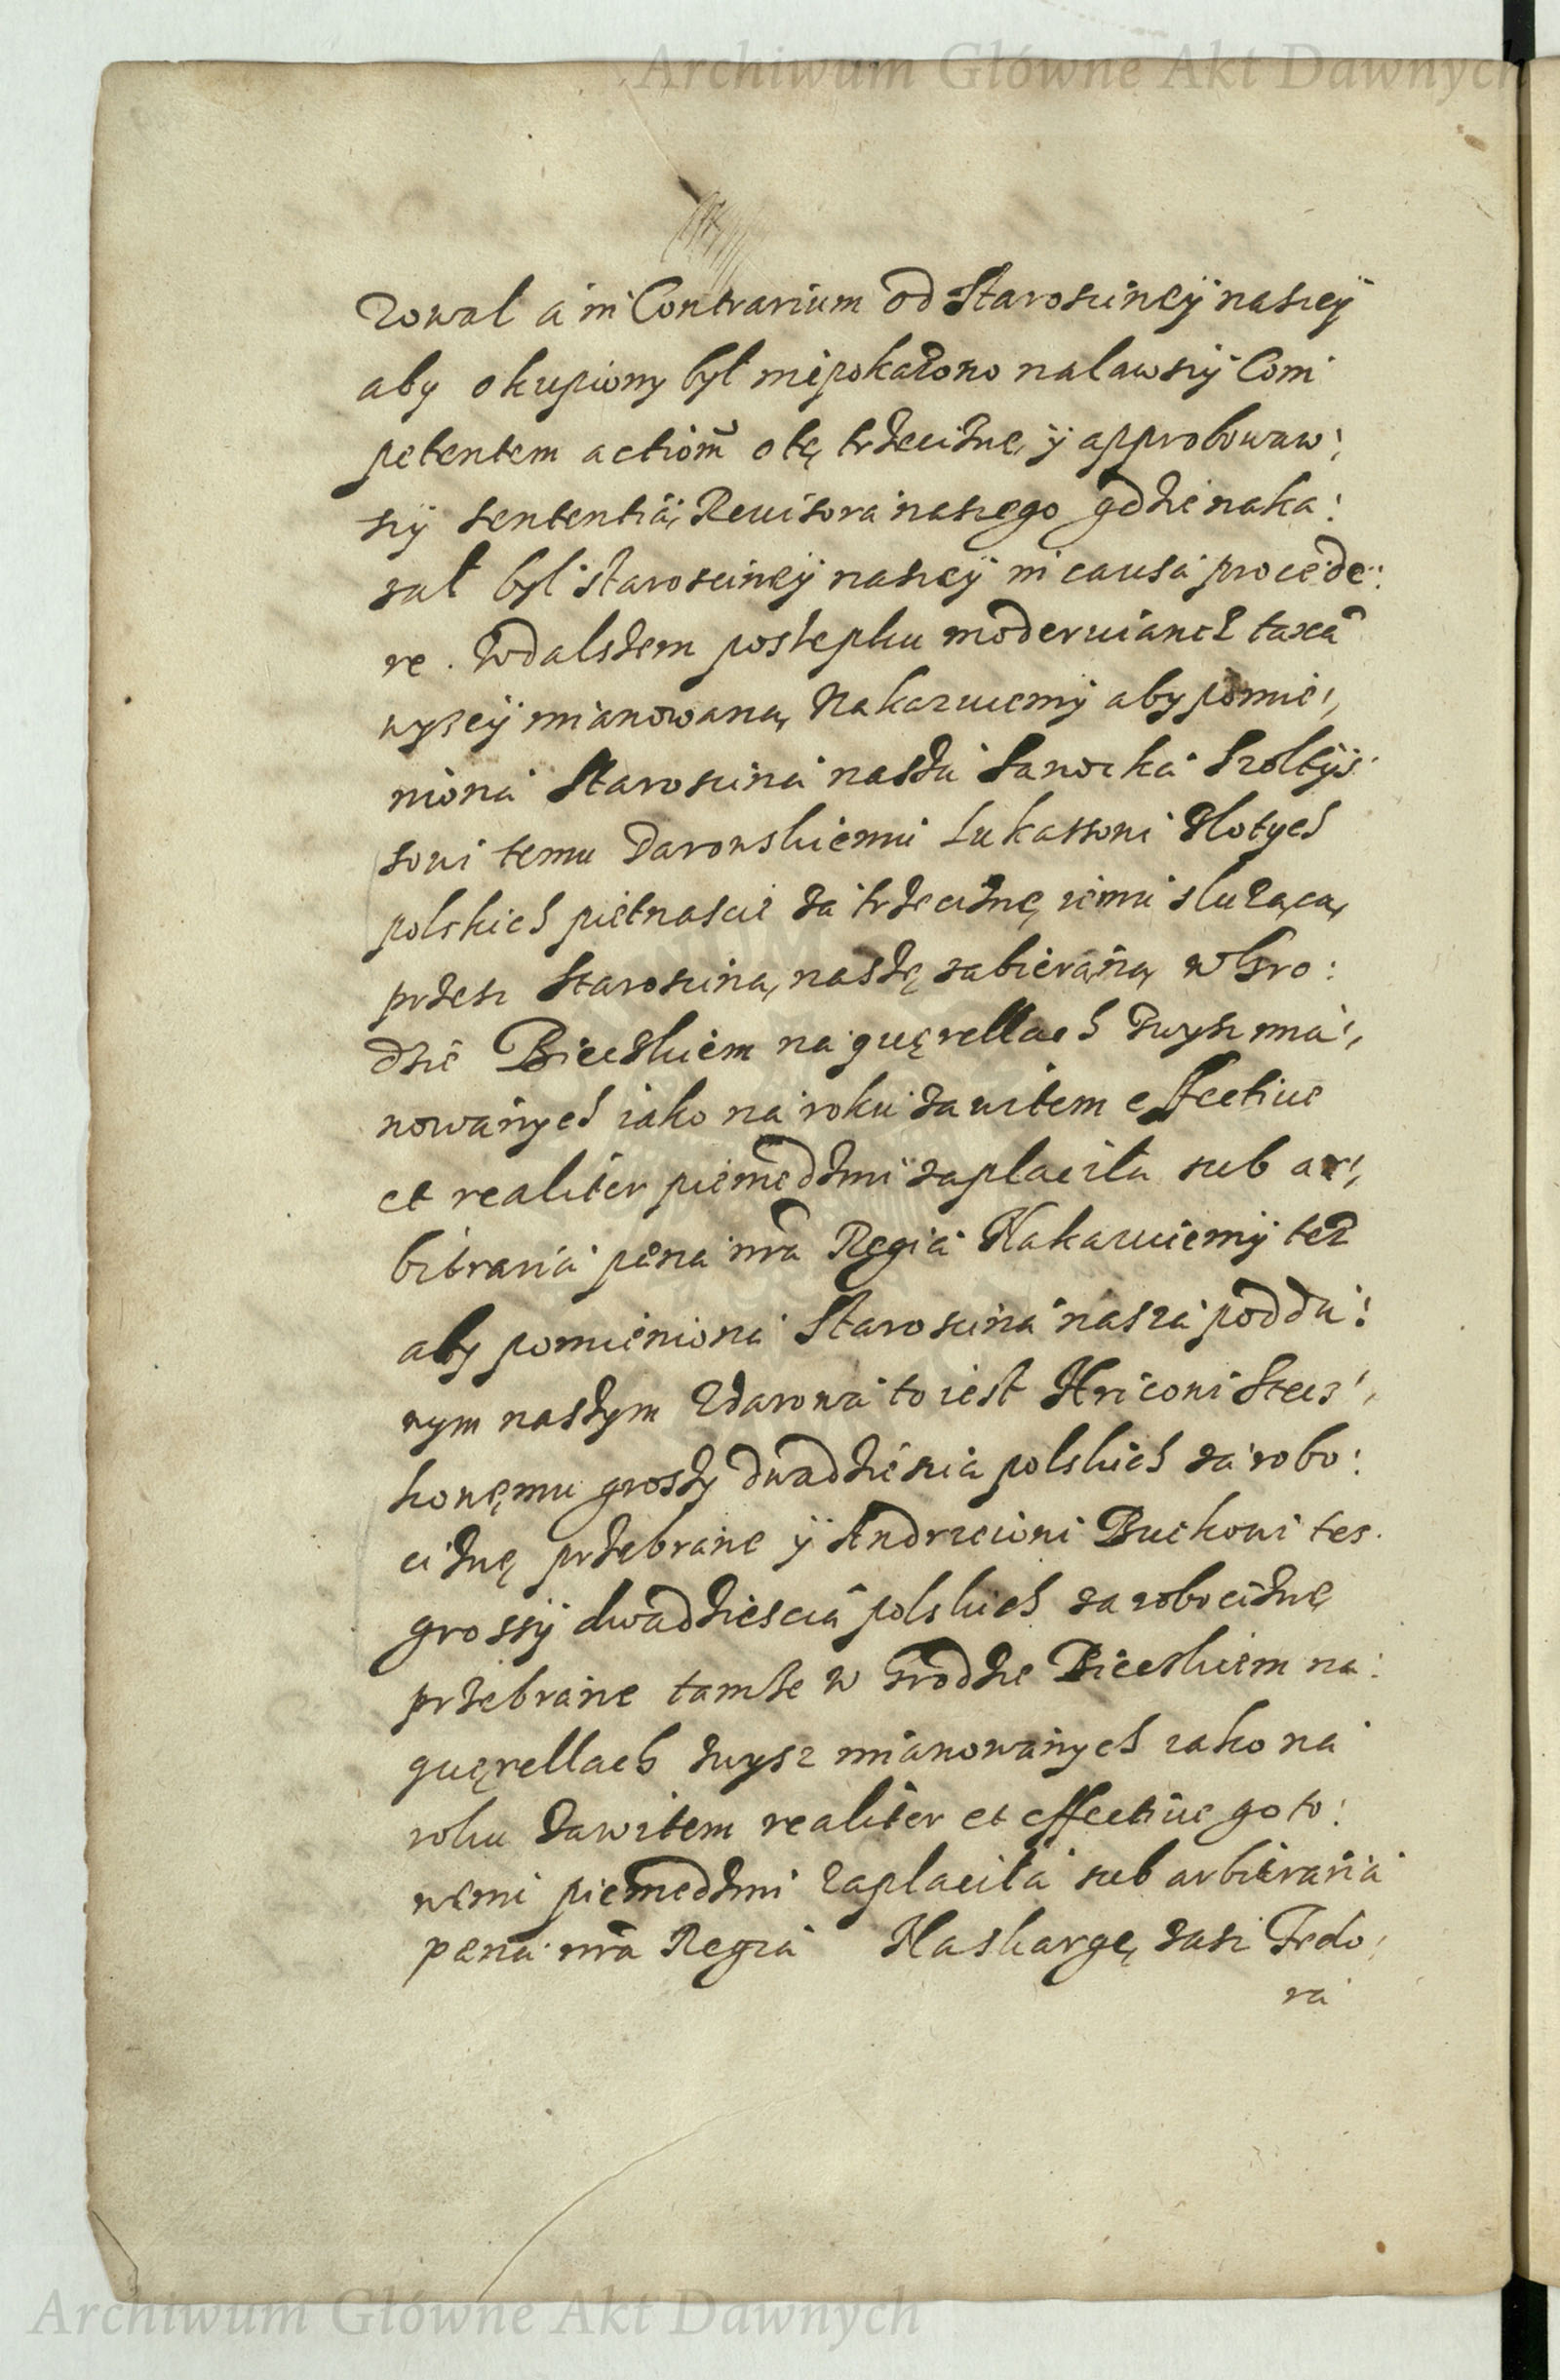 Archiwum Główne Akt Dawnych
zowal a in Contrarium od Starosciney naszey
aby okupiony był niepokazono nalawszy Com
petentem actiom̃ otę trzeciznę ÿ approbowaw:
szy sententią Reuisora naszego gdzie naka:
zał był starosciney naszey in causa procede:
re. Wdalszem postepku moderuiancz taxą
wyszey mianowaną, Nakazuiemy aby pomie:
niona Staroscina nasza Sanocka Szoltys
sowi temu Darowskiemu Lukassowi złotych
polskich pietnascie za trzeciznę iemu służącą,
przesz Staroscinę naszę zabieraną wGro:
dzie Bieczkiem na quęrellach zwysz mia:
nowanych iako na roku zawitem effectiue
et realiter pieniędzmi zapłaciła sub ar:
bitraria pæna nr̃a Regia Nakazuiemy też
aby pomieniona Staroscina nasza podda:
nym naszym zdarowa to iest Hricowi Stecz:
konęmu groszy dwadziescia polskich za robo:
ciznę przebrane ÿ Andrzeiowi Buckowi tes
groszy dwadziescia polskich za robociznę
przebrane tamże w Grodzie Bieczkiem na
quęrellach zwysz mianowanych iako na
roku zawitem realiter et effectiue goto:
wemi pieniędzmi zaplaciła sub arbitraria
pæna nr̃a Regia Naskargę zasz Fedo:
ra
Archiwum Główne Akt Dawnych